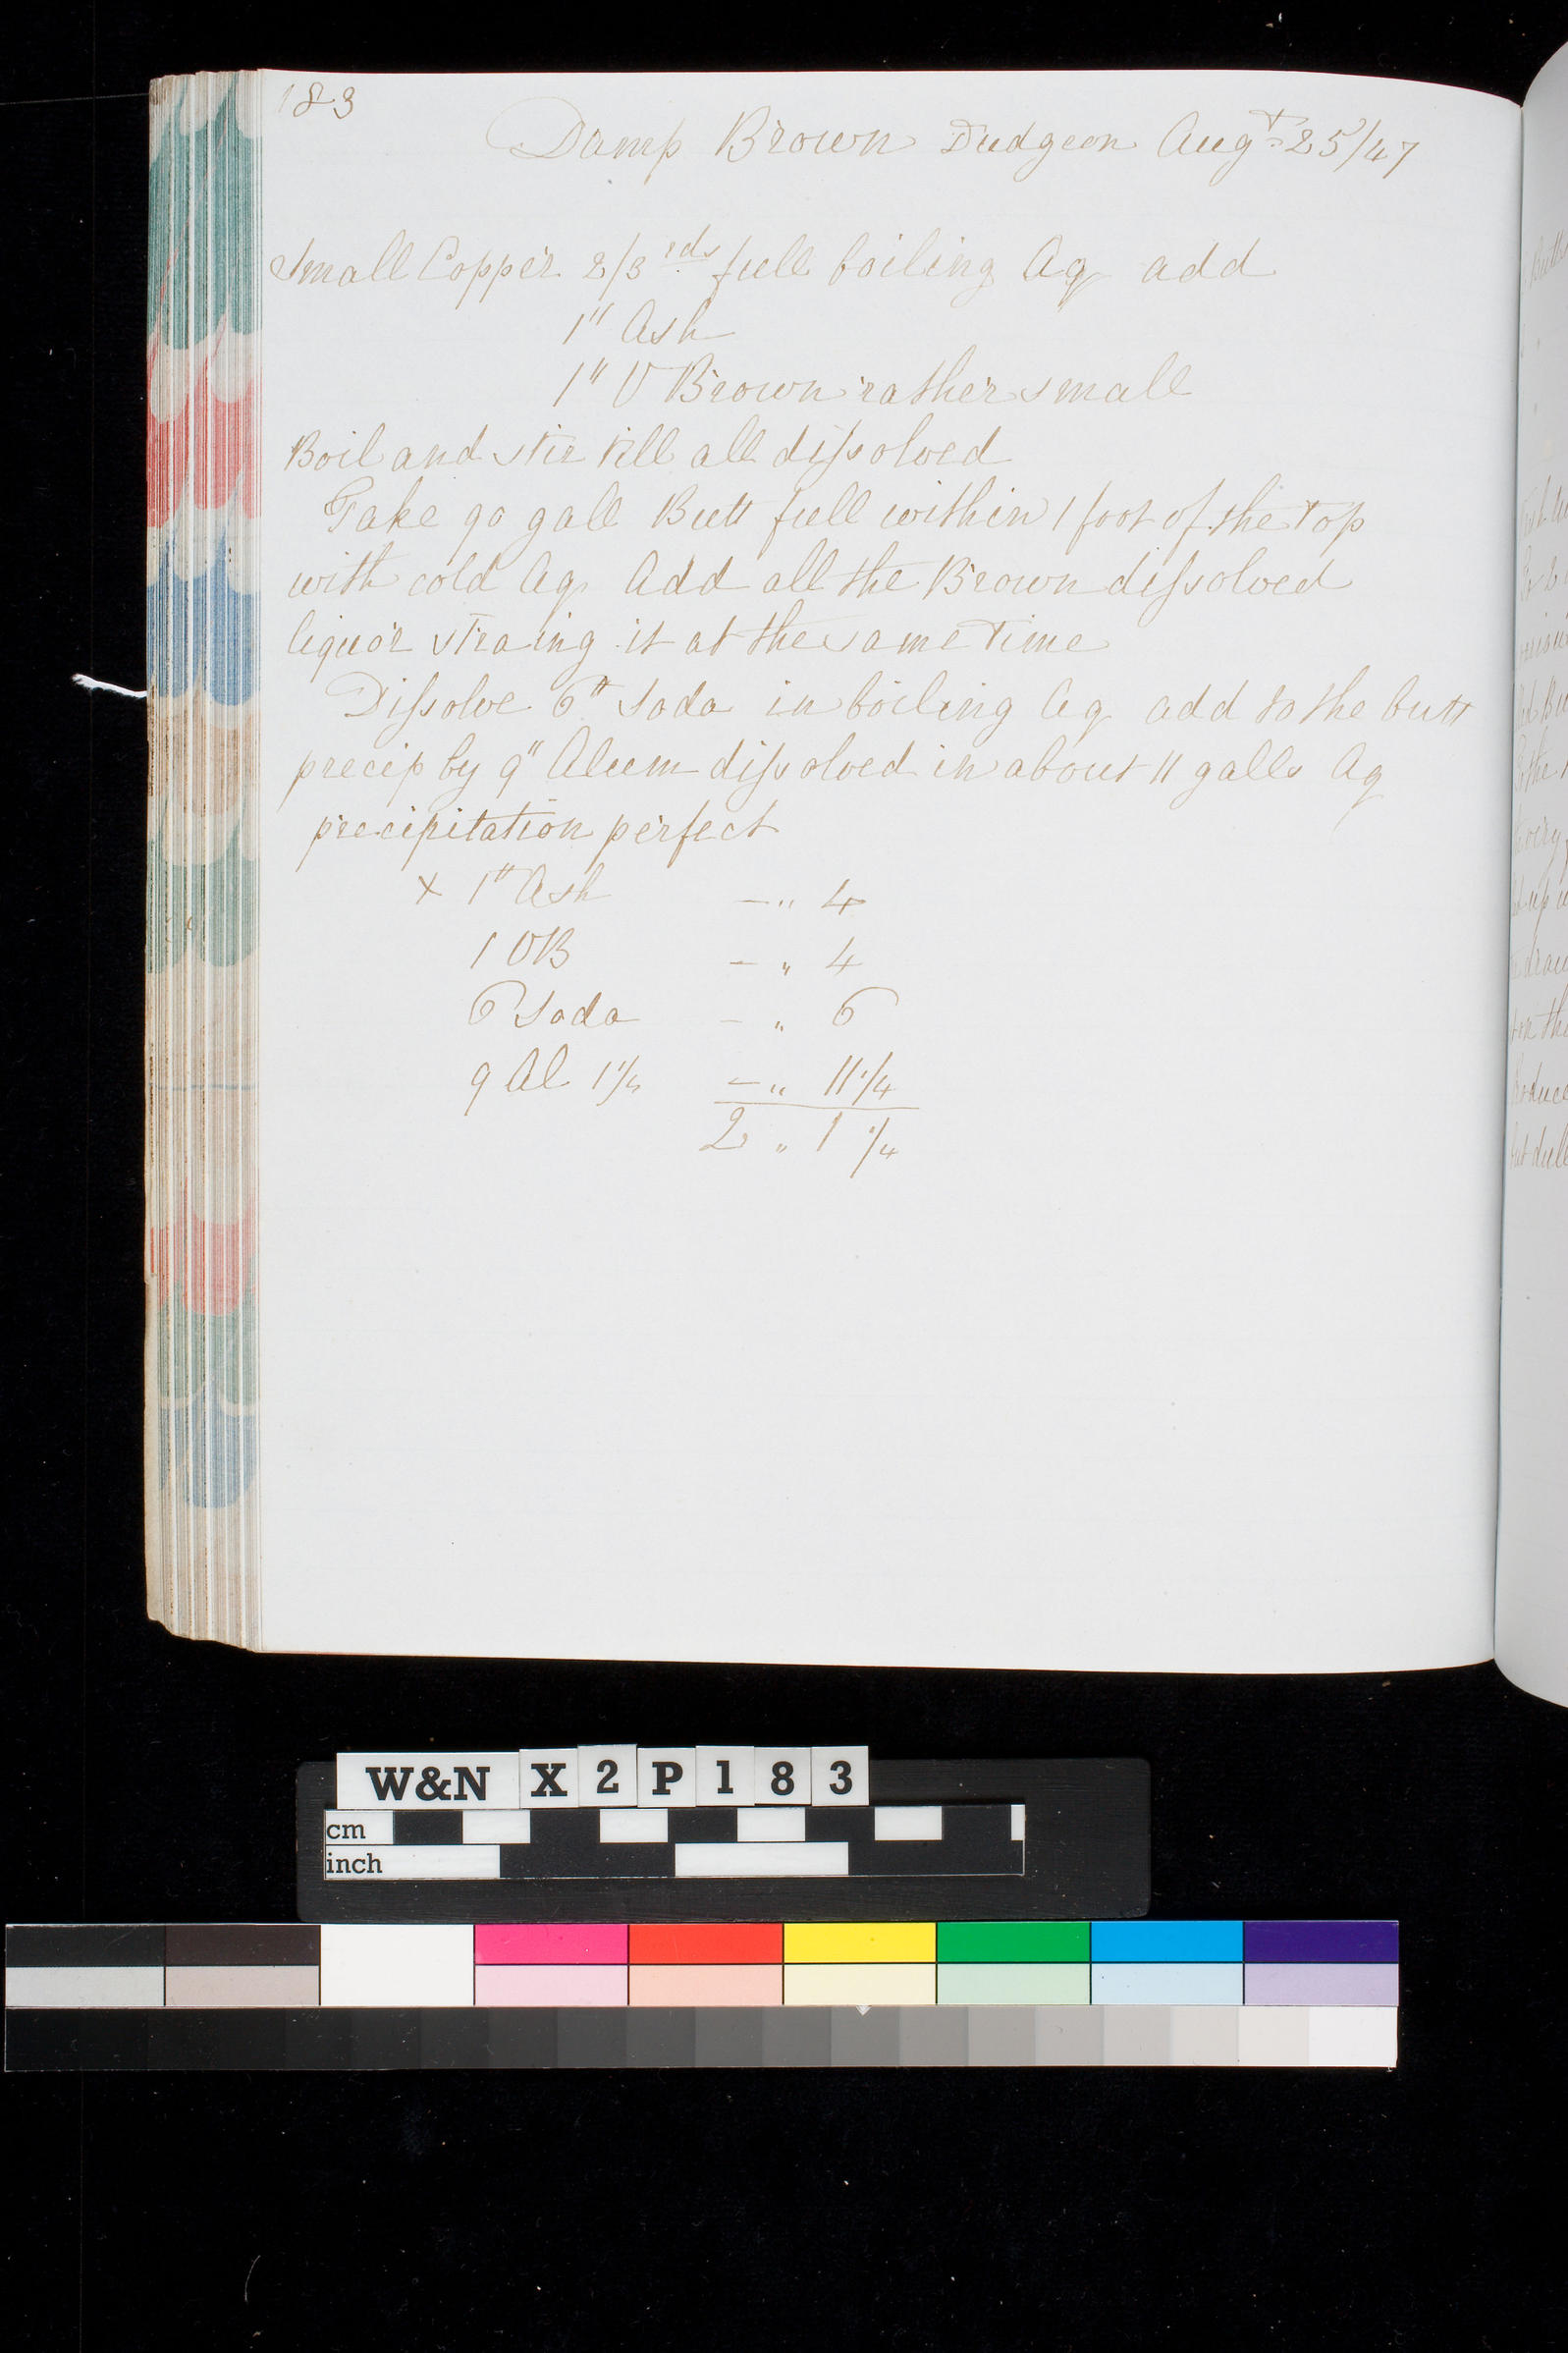 183
Damp Brown Dudgeon Augt 25/47
Small Copper 2/3rds full boiling Aq add
1" Ash
1" V Brown rather small
Boil and stir till all dissolved
Take 90 gall Butt full within 1 foot of the top
with cold Aq Add all the Brown dissolved
liquor straing it at the same time
Dissolve 6" Soda in boiling Aq add to the butt
precip by 9" Alum dissolved in about 11 galls Aq
precipitation perfect
x 1" Ash - " 4
1 VB - " 4
6 Soda - " 6
9 Al 1 1/4 - " 11 1/4
2 " 1 1/4
W&N X 2 P 1 8 3
cm
inch